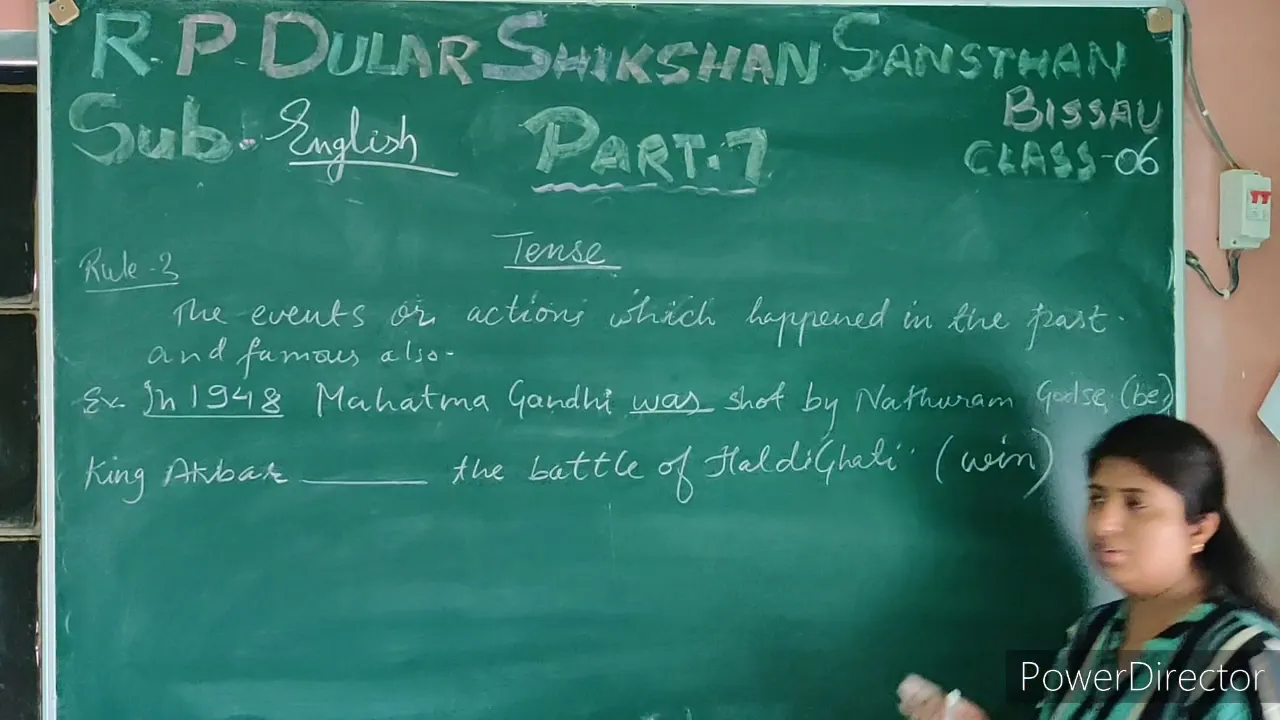 R.P. DULAR SHIKSHAN SANSTHAN
BISSAU
Sub. English PART.7 CLASS-06
Tense
Rule-3
The events or actions which happened in the past.
and famous also-
Ex. In 1948 Mahatma Gandhi was shot by Nathuram Godse (be)
King Akbar ______ the battle of HaldiGhati (win)
PowerDirector